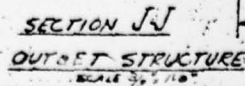 SECTION J-J
OUTLET STRUCTURE
SCALE